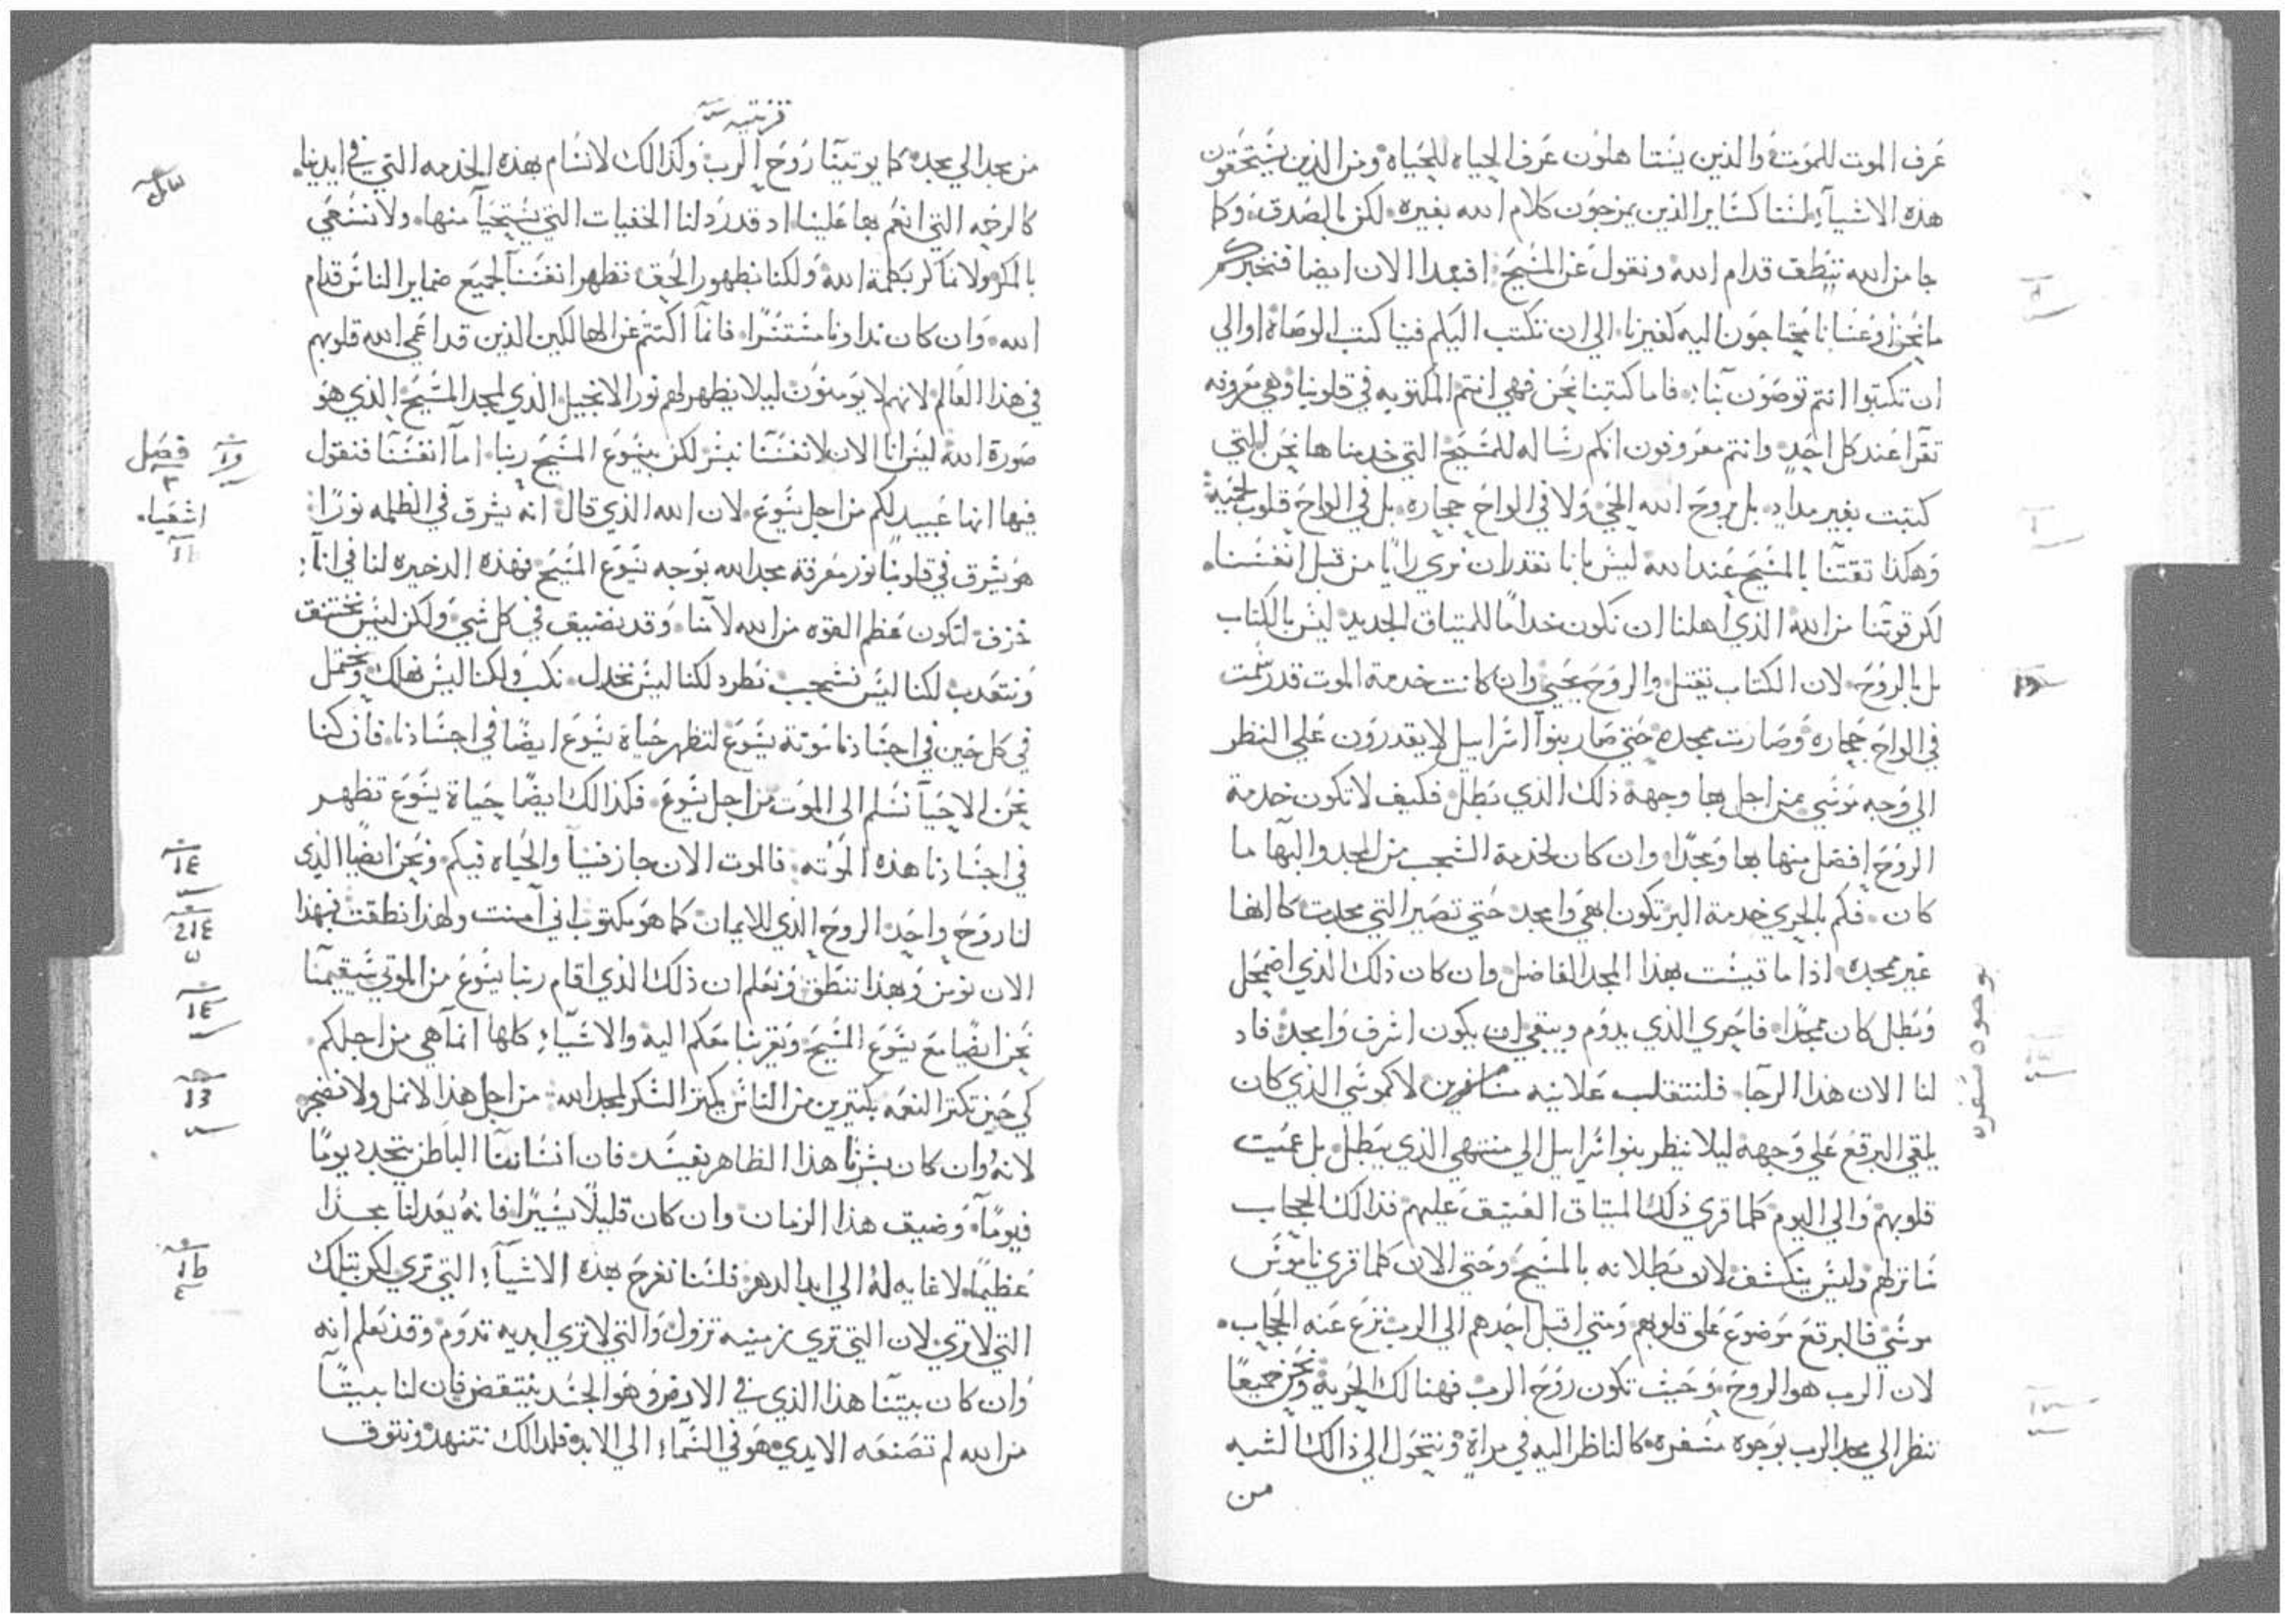 عرف الموت للموت والذين يستاهلون عرف الحياه للحياه ومن الذين يستحقون
هذه الاشياء لسنا كساير الذين يمزجون كلام الله بغيره لكن بالصدق وكما
جا من الله ننطق قدام الله ونقول عن المسيح افبعدا الان ايضا فنخبركم
ما نحن اوعسانا نحتاجون اليه كغيرنا الي ان نكتب اليكم فينا كتب الوصاة او الي
ان تكتبوا انتم توصون بنا فاما كتبنا نحن فهي انتم المكتوبه في قلوبنا وهي معروفه
تقرا عند كل احد وانتم معروفون انكم رساله للمسيح التي خدمناها نحن التي
كتبت بغير مداد بل بروح الله الحي ولا في الواح حجاره بل في الواح قلوب لحميه
وهكذا تقتنا بالمسيح عند الله ليس بانا نقدر ان نري رايا من قبل انفسنا
لكن قوتنا من الله الذي اهلنا ان نكون خداما للميتاق الجديد ليس بالكتاب
بل بالروح لان الكتاب يقتل والروح يحيي وان كانت خدمة الموت قد رسمت
في الواح حجاره وصارت ممجده حتي صار بنوا اسراييل لا يقدرون علي النظر
الي وجه موسي من اجل بها وجهه ذلك الذي بطل فكيف لا تكون خدمة
الروح افضل منها بها ومجدا وان كان لخدمة الشجب من المجد والبها ما
كان فكم بالحري خدمة البر تكون ابهي وامجد حتي تصير التي مجدت كانها
غير ممجده اذا ما قيست بهذا المجد الفاضل وان كان ذلك الذي اضمحل
وبطل كان ممجدا فاحري الذي يدوم ويبقي ان يكون اشرف وامجد فاد
لنا الان هذا الرجا فلنتقلب علانيه لا كموسي الذي كان
يلقي البرقع علي وجهه ليلا ينظر بنوا اسراييل الي منتهي الذي يبطل بل عميت
قلوبهم والي اليوم كلما قري ذلك الميتاق العتيق عليهم فذالك الحجاب
ساترلهم وليس ينكشف لان بطلانه بالمسيح وحتي الان كلما قري ناموس
موسي فالبرقع موضوع علي قلوبهم ومتي اقبل احدهم الي الرب نزع عنه الحجاب
لان الرب هو الروح وحيث تكون روح الرب فهنالك الحريه ونحن جميعا
ننظر الي مجد الرب بوجوه مسفره كالناظر اليه في مراة ونتحول الي ذالك الشبه
من
بوجوه مسفره
قرنتيه
من مجد الي مجده كما يوتينا روح الرب وكذالك لا نسام بهذه الخدمه التي في ايدينا
كالرحمه التي انعم بها علينا اد قد رد لنا الخفيات التي يستحيا منها ولا نسعي
بالمكر ولا نماكر بكلمة الله ولكنا بظهور الحق نظهر انفسنا لجميع ضماير الناس قدام
الله وان كان ندا ونا مستترا فانما اكتتم عن الهالكين الذين قد اعمي الله قلوبهم
في هذا العالم لانهم لا يومنون ليلا يظهر لهم نور الانجيل الذي لمجد المسيح الذي هو
صورة الله ليس انا الان لانفسنا نبشر لكن بيسوع المسيح ربنا اما انفسنا فنقول
فيها انها عبيد لكم من اجل يسوع لان الله الذي قال انه يشرق في الظلمه نورا
هو يشرق في قلوبنا نور معرفة مجد الله بوجه يسوع المسيح فهذه الدخيره لنا في انا
خزف لتكون عظم القوه من الله لا منا وقد نضيق في كل شي ولكن ليس نختنق
ونتعدب لكنا ليس نشجب نطرد لكنا ليس نخدل نكب ولكنا ليس نهلك ونحتمل
في كل حين في اجسادنا موتة يسوع لتظهر حياة يسوع ايضا في اجسادنا فان كنا
نحن الاحيا نسلم الي الموت من اجل يسوع فكذالك ايضا حياة يسوع تظهر
في اجسادنا هذه الموته فالموت الان جاز فينا والحياه فيكم ونحن ايضا الذي
لنا روح واحد الروح الذي للايمان كما هو مكتوب اني آمنت ولهذا نطقت فبهذا
الان نومن وبهذا ننطق ونعلم ان ذلك الذي اقام ربنا يسوع من الموتي سيقيمنا
نحن ايضا مع يسوع المسيح ويقربنا معكم اليه والاشياء كلها انما هي من اجلكم
كي حين تكتر النعمه بكتيرين من الناس يكتر الشكر لمجد الله من اجل هذا لا نمل ولا نضجر
لانه وان كان بشرنا هذا الظاهر يفسد فان انساننا الباطن يتجدد يوما
فيوما وضيق هذا الزمان وان كان قليلا يسيرا فانه يعد لنا مجدا
عظيما لا غايه له الي ابد الدهر فلسنا نفرح بهذه الاشياء التي تري لكن بتلك
التي لا تري لان التي تري زمنيه تزول والتي لا تري ابديه تدوم وقد نعلم انه
وان كان بيتنا هذا الذي في الارض وهو الجسد ينتقض فان لنا بيتا
من الله لم تصنعه الايدي هو في السماء الي الابد فلدالك نتنهد ونتوق
فصل
اشعياء